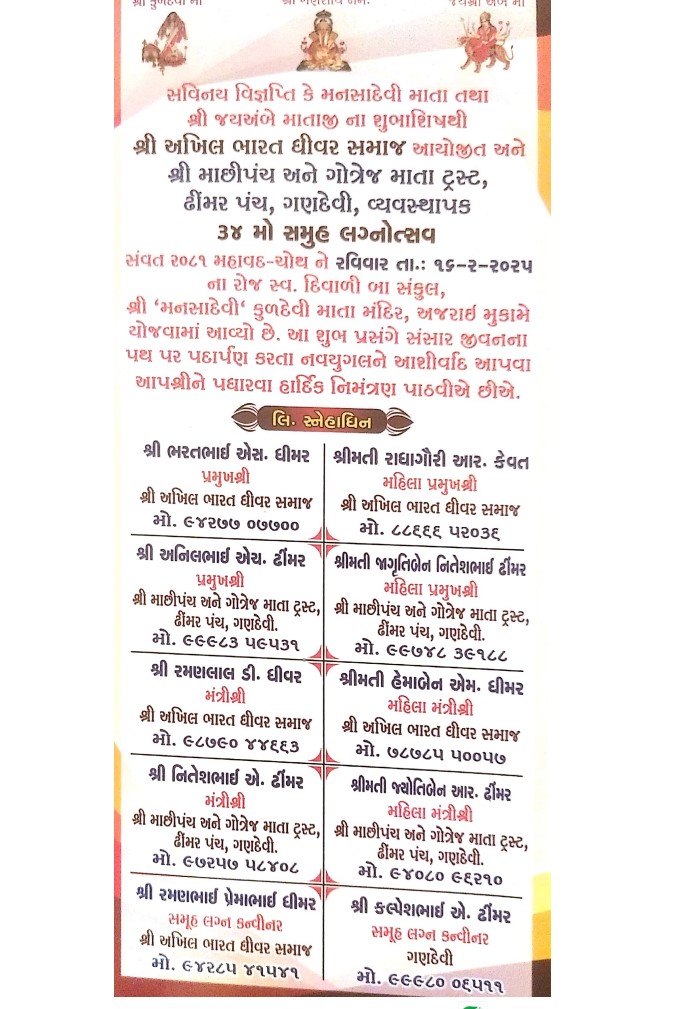 શ્રી કુળદેવી મા શ્રી ગણેશાય નમઃ જયશ્રી અંબે માં
સવિનય વિજ્ઞપ્તિ કે મનસાદેવી માતા તથા
શ્રી જયઅંબે માતાજી ના શુભાશિષથી
શ્રી અખિલ ભારત ધીવર સમાજ આયોજીત અને
શ્રી માછીપંચ અને ગોત્રેજ માતા ટ્રસ્ટ,
ઢીંમર પંચ, ગણદેવી, વ્યવસ્થાપક
૩૪ મો સમુહ લગ્નોત્સવ
સંવત ૨૦૮૧ મહાવદ-ચોથ ને રવિવાર તા.: ૧૬-૨-૨૦૨૫
ના રોજ સ્વ. દિવાળી બા સંકુલ,
શ્રી ‘મનસાદેવી‘ કુળદેવી માતા મંદિર, અજરાઇ મુકામે
યોજવામાં આવ્યો છે. આ શુભ પ્રસંગે સંસાર જીવનના
પથ પર પદાર્પણ કરતા નવયુગલને આશીર્વાદ આપવા
આપશ્રીને પધારવા હાર્દિક નિમંત્રણ પાઠવીએ છીએ.
લિ. સ્નેહાધિન
શ્રી ભરતભાઈ એસ. ધીમર
પ્રમુખશ્રી
શ્રી અખિલ ભારત ધીવર સમાજ
મો. ૯૪૨૭૭ ૦૭૭૦૦
શ્રીમતી રાધાગૌરી આર. કેવત
મહિલા પ્રમુખશ્રી
શ્રી અખિલ ભારત ધીવર સમાજ
મો. ૮૮૬૬૬ ૫૨૦૩૬
શ્રી અનિલભાઈ એચ. ઢીંમર
પ્રમુખશ્રી
શ્રી માછીપંચ અને ગોત્રેજ માતા ટ્રસ્ટ,
ઢીંમર પંચ, ગણદેવી.
મો. ૯૯૯૮૩ ૫૯૫૩૧
શ્રીમતી જાગૃતિબેન નિતેશભાઈ ઢીંમર
મહિલા પ્રમુખશ્રી
શ્રી માછીપંચ અને ગોત્રેજ માતા ટ્રસ્ટ,
ઢીંમર પંચ, ગણદેવી.
મો. ૯૯૭૪૮ ૩૯૧૮૮
શ્રી રમણલાલ ડી. ધીવર
મંત્રીશ્રી
શ્રી અખિલ ભારત ધીવર સમાજ
મો. ૯૮૭૯૦ ૪૪૬૬૩
શ્રીમતી હેમાબેન એમ. ધીમર
મહિલા મંત્રીશ્રી
શ્રી અખિલ ભારત ધીવર સમાજ
મો. ૭૮૭૮૫ ૫૦૦૫૭
શ્રી નિતેશભાઈ એ. ઢીંમર
મંત્રીશ્રી
શ્રી માછીપંચ અને ગોત્રેજ માતા ટ્રસ્ટ,
ઢીંમર પંચ, ગણદેવી.
મો. ૯૭૨૫૭ ૫૮૪૦૮
શ્રીમતી જ્યોતિબેન આર. ઢીંમર
મહિલા મંત્રીશ્રી
શ્રી માછીપંચ અને ગોત્રેજ માતા ટ્રસ્ટ,
ઢીંમર પંચ, ગણદેવી.
મો. ૯૪૦૮૦ ૯૬૨૧૦
શ્રી રમણભાઈ પ્રેમાભાઈ ધીમર
સમૂહ લગ્ન કન્વીનર
શ્રી અખિલ ભારત ધીવર સમાજ
મો. ૯૪૨૮૫ ૪૧૫૪૧
શ્રી કલ્પેશભાઈ એ. ઢીંમર
સમૂહ લગ્ન કન્વીનર
ગણદેવી
મો. ૯૯૯૮૦ ૦૬૫૧૧